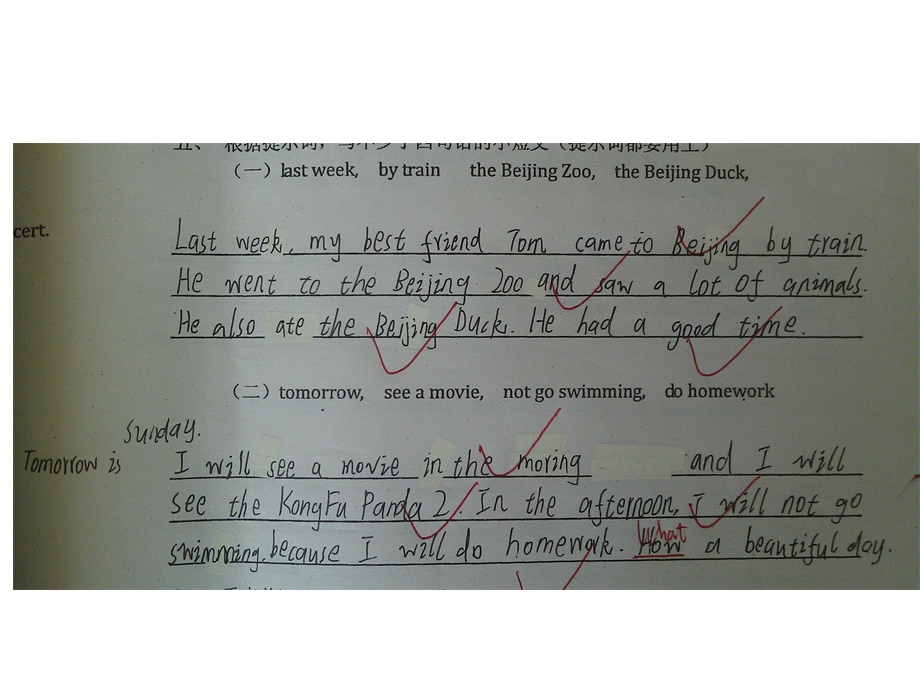 五、 根据提示词，写不少于四句话的小短文（提示词都要用上）
（一）last week, by train the Beijing Zoo, the Beijing Duck,
cert.
Last week, my best friend Tom came to Beijing by train.
He went to the Beijing Zoo and saw a lot of animals.
He also ate the Beijing Duck. He had a good time.
（二）tomorrow, see a movie, not go swimming, do homework
Sunday.
Tomorrow is I will see a movie in the moring and I will
see the KongFu Panda 2. In the afternoon, I will not go
swimming. because I will do homework. How What a beautiful day.